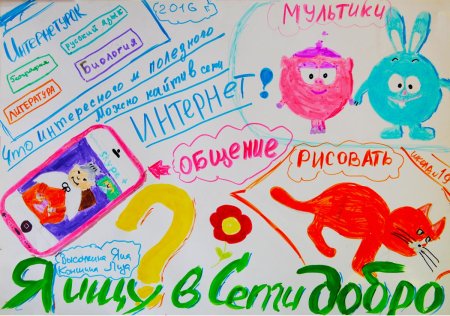 (2016 г)
Интернетурок
русский язык
География
Биология
Литература
Что интересного и полезного
можно найти в сети
ИНТЕРНЕТ!
МУЛЬТИКИ
ОБЩЕНИЕ
РИСОВАТЬ
?
Яна
Я ищу в Сети добро